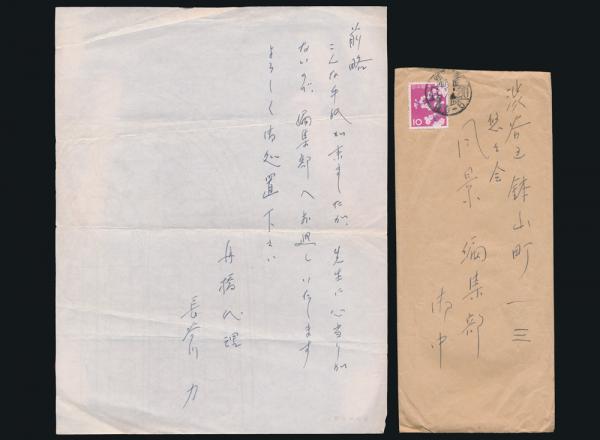 前略
こんな手紙が来ましたが、先生に心当りが
ないので、編集部へお廻しいたします
よろしく御処置下さい
舟橋代理
長谷川 力
渋谷区鉢山町一三
悠々会
風景 編集部
御中
10